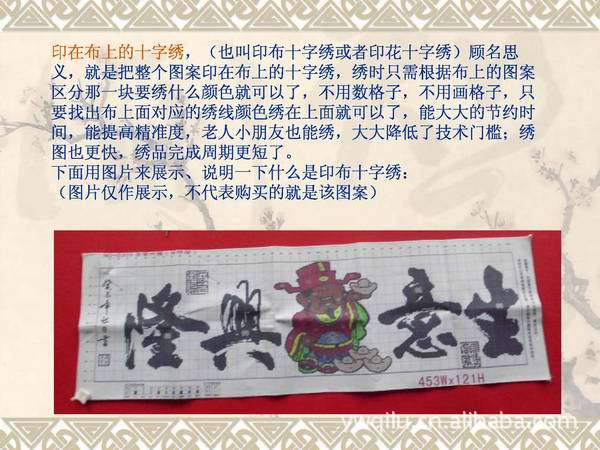 印在布上的十字绣，（也叫印布十字绣或者印花十字绣）顾名思
义，就是把整个图案印在布上的十字绣，绣时只需根据布上的图案
区分那一块要绣什么颜色就可以了，不用数格子，不用画格子，只
要找出布上面对应的绣线颜色绣在上面就可以了，能大大的节约时
间，能提高精准度，老人小朋友也能绣，大大降低了技术门槛；绣
图也更快，绣品完成周期更短了。
下面用图片来展示、说明一下什么是印布十字绣：
（图片仅作展示，不代表购买的就是该图案）
隆興 意生
453Wx121H
ywqilu.cn.alibaba.com